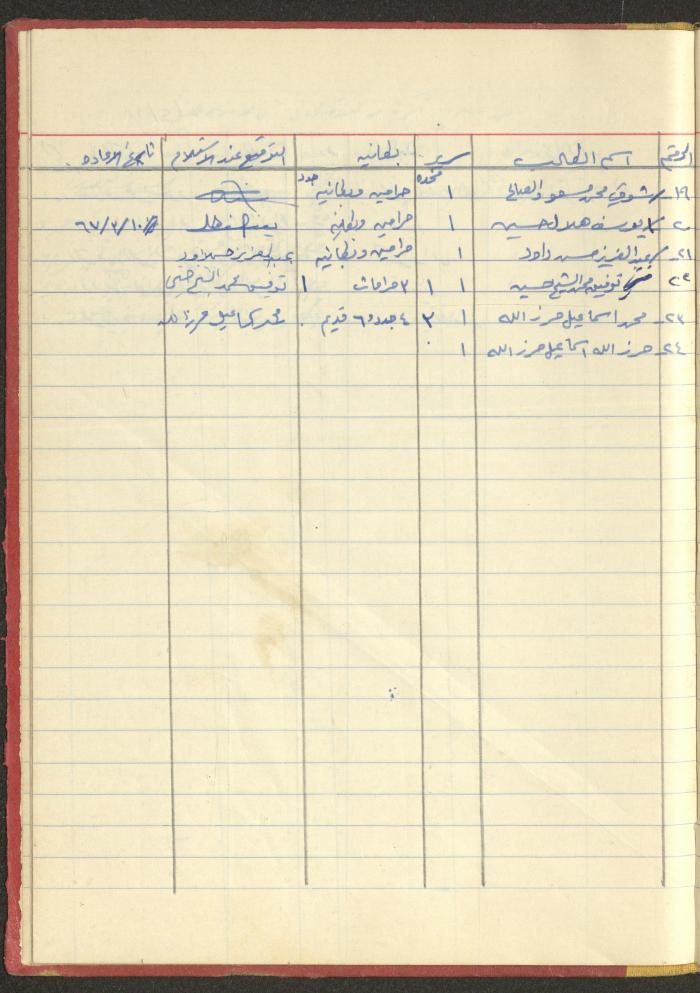 الرقم اسم الطالب سرير بطانيه التوقيع عند الاستلام تاريخ الاعاده
مخده جدد
١٩ شوقي محمد مسعود ١ حرامين وبطانيه
٢٠ يوسف هلال حسين ١ حرامين وبطانيه يوسف هلال ٦٧/٧/١٠
٢١ عبد العزيز حسن داود ١ حرامين وبطانيه عبد العزيز حسن داود
٢٢ توفيق محمد الشيخ حسين ١ ١ ٣ حرامات ١ توفيق محمد الشيخ حسين
٢٣ محمد اسماعيل حرز الله ١ ٣ ٤ جدد و٦ قديم محمد اسماعيل حرز الله
٢٤ حرز الله اسماعيل حرز الله ١